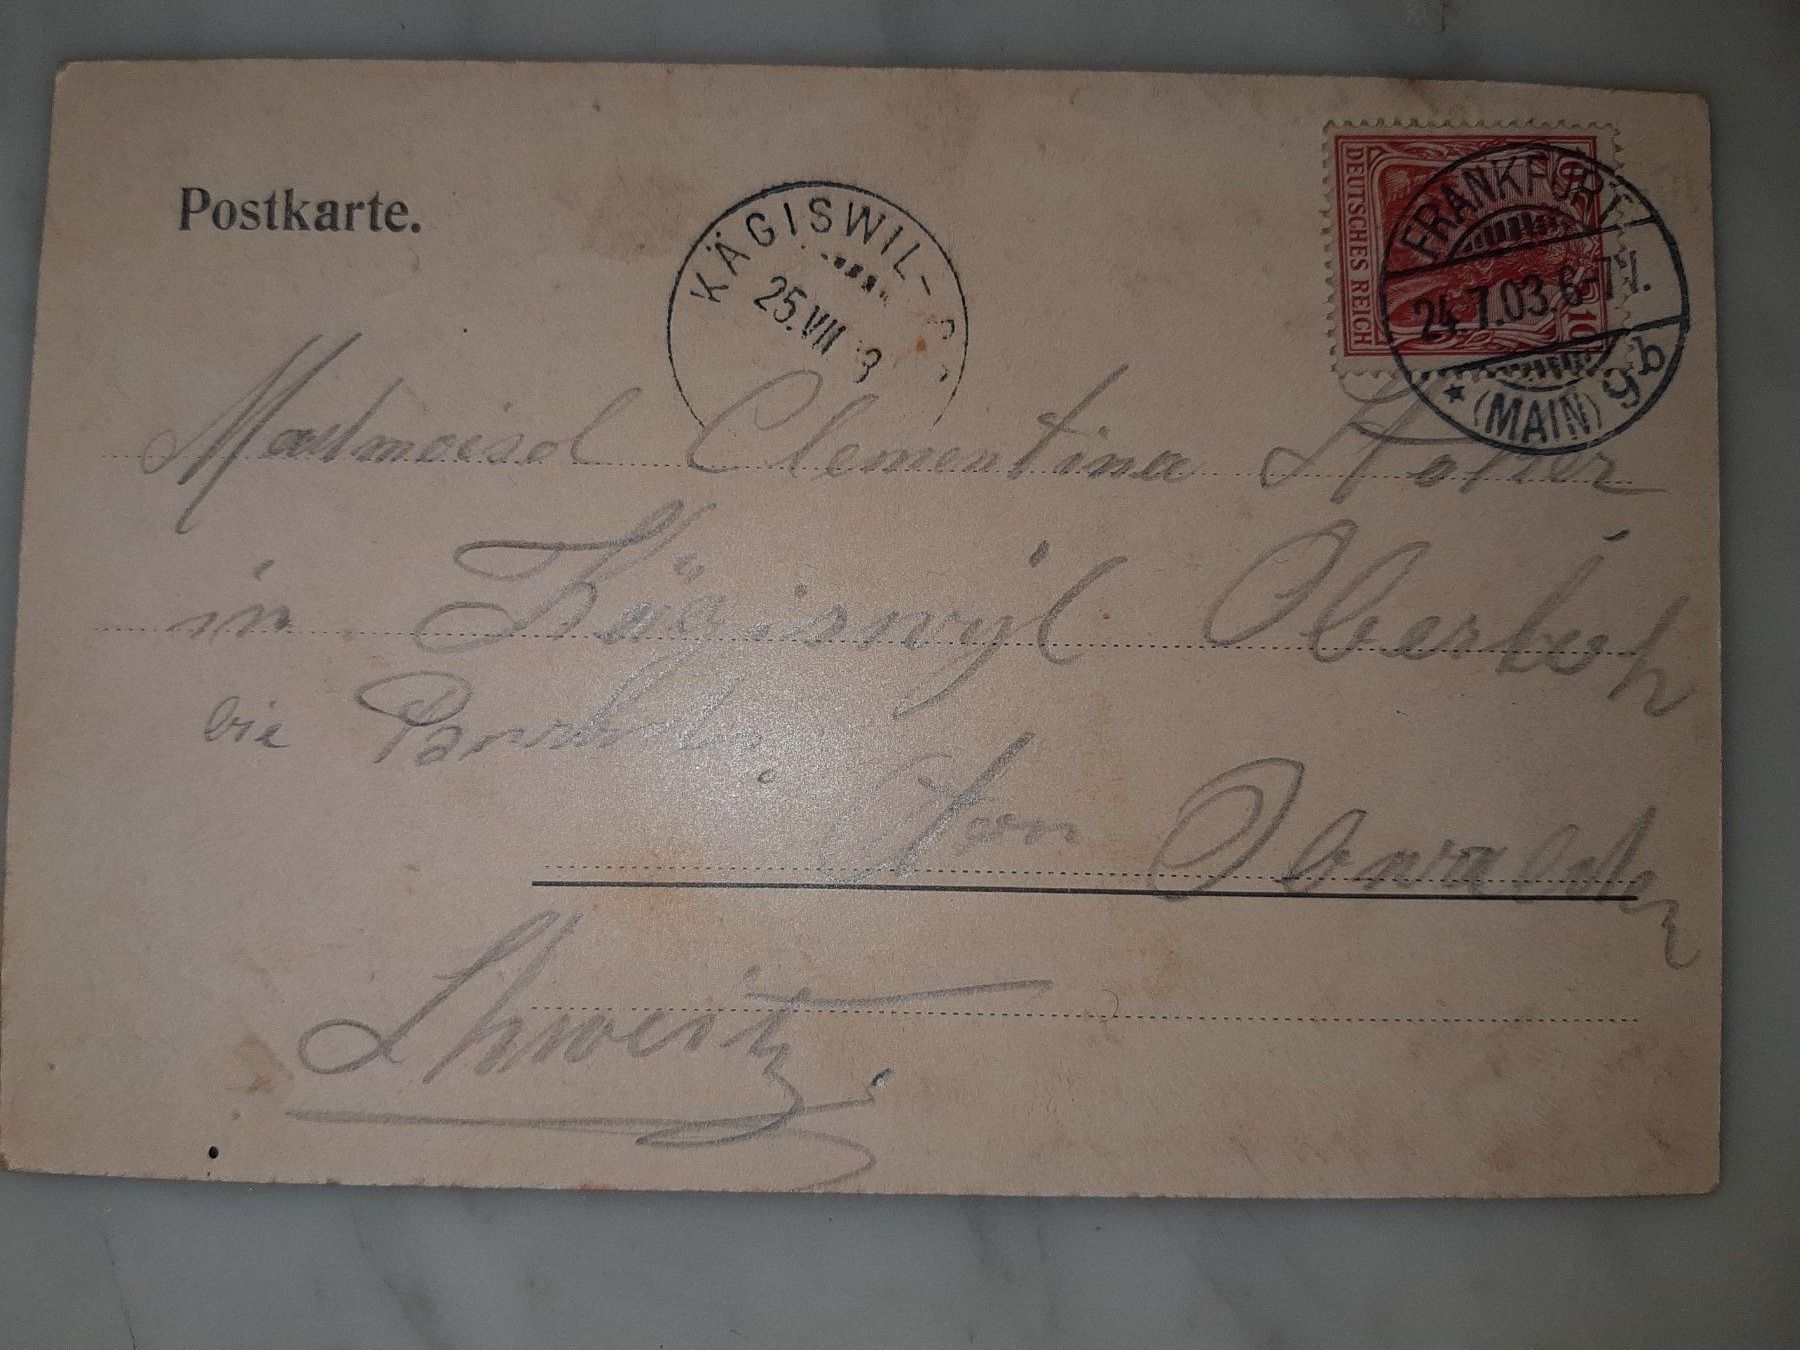 Postkarte.
KÄGISWIL-
25.VII 3
DEUTSCHES REICH
10
FRANKFURT
24.7.03.6-7N.
* (MAIN) 9b
Madmoisel Clementina
in Kägiswyl
bie
Ton Obwalden
Schweitz.